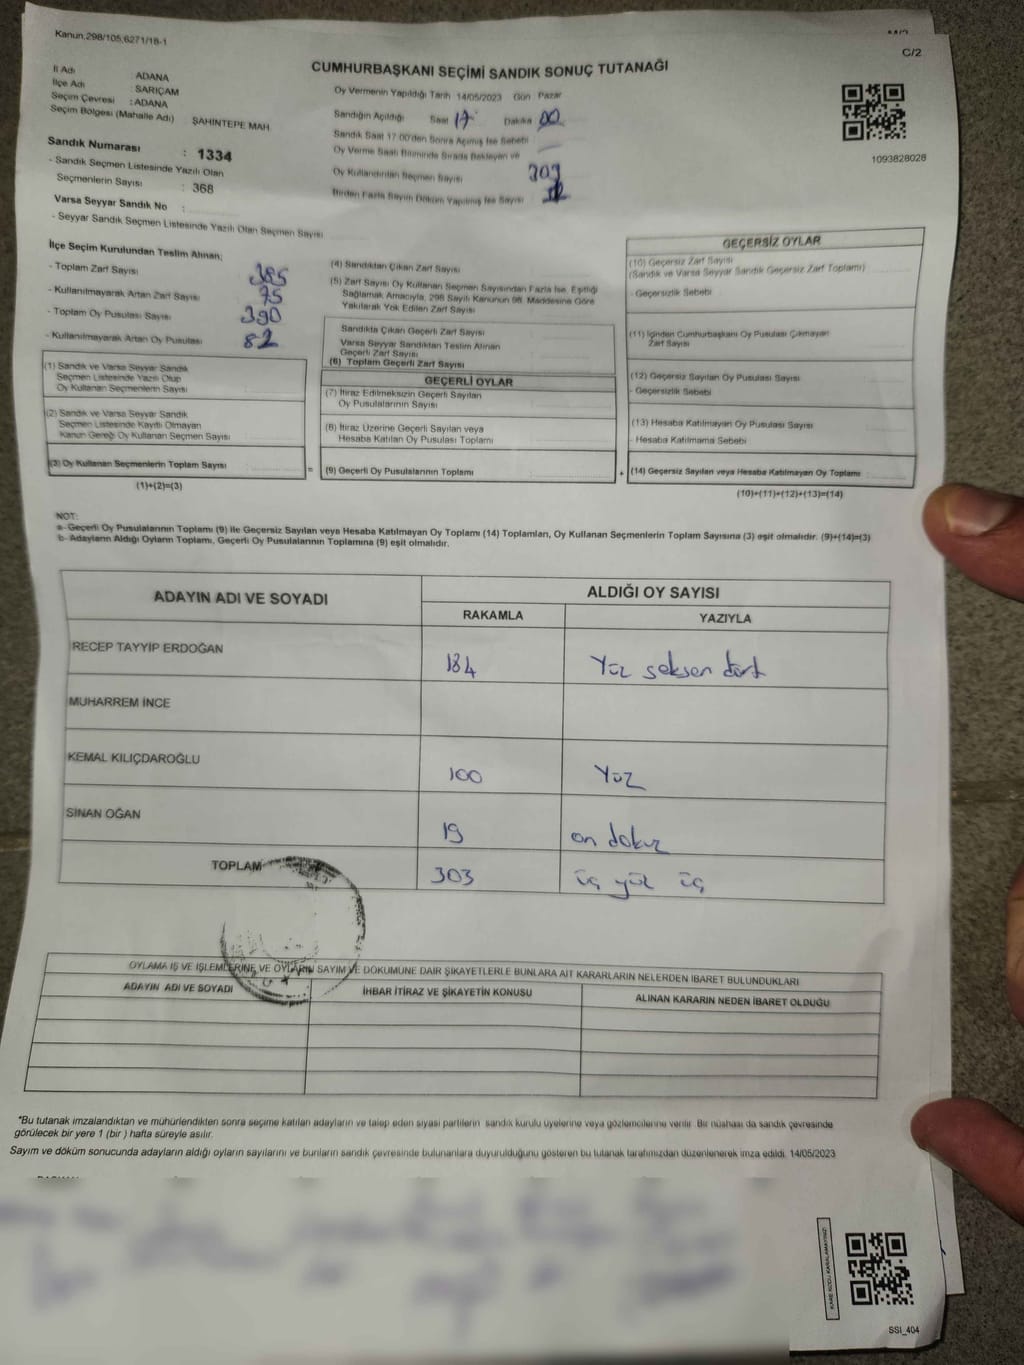 Kanun,298/105,6271/18-1
C/2
CUMHURBAŞKANI SEÇİMİ SANDIK SONUÇ TUTANAĞI
İl Adı ADANA
İlçe Adı : SARIÇAM
Seçim Çevresi : ADANA
Seçim Bölgesi (Mahalle Adı) : ŞAHİNTEPE MAH
Sandık Numarası : 1334
- Sandık Seçmen Listesinde Yazılı Olan
Seçmenlerin Sayısı : 368
Varsa Seyyar Sandık No :
- Seyyar Sandık Seçmen Listesinde Yazılı Olan Seçmen Sayısı
Oy Vermenin Yapıldığı Tarih 14/05/2023 Gün Pazar
Sandığın Açıldığı Saat 17 Dakika 00
Sandık Saat 17.00'den Sonra Açılmış İse Sebebi
Oy Verme Saati Bitiminde Sırada Bekleyen ve
Oy Kullandırılan Seçmen Sayısı
Birden Fazla Sayım Döküm Yapılmış İse Sayısı
1093828028
İlçe Seçim Kurulundan Teslim Alınan;
- Toplam Zarf Sayısı 385
- Kullanılmayarak Artan Zarf Sayısı 75
- Toplam Oy Pusulası Sayısı 390
- Kullanılmayarak Artan Oy Pusulası 82
(1) Sandık ve Varsa Seyyar Sandık
Seçmen Listesinde Yazılı Olup
Oy Kullanan Seçmenlerin Sayısı
(2) Sandık ve Varsa Seyyar Sandık
Seçmen Listesinde Kayıtlı Olmayan
Kanun Gereği Oy Kullanan Seçmen Sayısı
(3) Oy Kullanan Seçmenlerin Toplam Sayısı
(1)+(2)=(3)
(4) Sandıktan Çıkan Zarf Sayısı
(5) Zarf Sayısı Oy Kullanan Seçmen Sayısından Fazla İse, Eşitliği
Sağlamak Amacıyla, 298 Sayılı Kanunun 98. Maddesine Göre
Yakılarak Yok Edilen Zarf Sayısı
Sandıkta Çıkan Geçerli Zarf Sayısı
Varsa Seyyar Sandıktan Teslim Alınan
Geçerli Zarf Sayısı
(6) Toplam Geçerli Zarf Sayısı
GEÇERLİ OYLAR
(7) İtiraz Edilmeksizin Geçerli Sayılan
Oy Pusulalarının Sayısı
(8) İtiraz Üzerine Geçerli Sayılan veya
Hesaba Katılan Oy Pusulası Toplamı
= (9) Geçerli Oy Pusulalarının Toplamı
GEÇERSİZ OYLAR
(10) Geçersiz Zarf Sayısı
(Sandık ve Varsa Seyyar Sandık Geçersiz Zarf Toplamı)
- Geçersizlik Sebebi
(11) İçinden Cumhurbaşkanı Oy Pusulası Çıkmayan
Zarf Sayısı
(12) Geçersiz Sayılan Oy Pusulası Sayısı
- Geçersizlik Sebebi
(13) Hesaba Katılmayan Oy Pusulası Sayısı
- Hesaba Katılmama Sebebi
+ (14) Geçersiz Sayılan veya Hesaba Katılmayan Oy Toplamı
(10)+(11)+(12)+(13)=(14)
NOT:
a- Geçerli Oy Pusulalarının Toplamı (9) ile Geçersiz Sayılan veya Hesaba Katılmayan Oy Toplamı (14) Toplamları, Oy Kullanan Seçmenlerin Toplam Sayısına (3) eşit olmalıdır. (9)+(14)=(3)
b- Adayların Aldığı Oyların Toplamı, Geçerli Oy Pusulalarının Toplamına (9) eşit olmalıdır.
ADAYIN ADI VE SOYADI
ALDIĞI OY SAYISI
RAKAMLA YAZIYLA
RECEP TAYYİP ERDOĞAN 184 Yüz seksen dört
MUHARREM İNCE
KEMAL KILIÇDAROĞLU 100 Yüz
SİNAN OĞAN 19 on dokuz
TOPLAM 303 üç yüz üç
OYLAMA İŞ VE İŞLEMLERİNE VE OYLARIN SAYIM VE DÖKÜMÜNE DAİR ŞİKAYETLERLE BUNLARA AİT KARARLARIN NELERDEN İBARET BULUNDUKLARI
ADAYIN ADI VE SOYADI İHBAR İTİRAZ VE ŞİKAYETİN KONUSU ALINAN KARARIN NEDEN İBARET OLDUĞU
*Bu tutanak imzalandıktan ve mühürlendikten sonra seçime katılan adayların ve talep eden siyasi partilerin sandık kurulu üyelerine veya gözlemcilerine verilir. Bir nüshası da sandık çevresinde
görülecek bir yere 1 (bir ) hafta süreyle asılır.
Sayım ve döküm sonucunda adayların aldığı oyların sayılarını ve bunların sandık çevresinde bulunanlara duyurulduğunu gösteren bu tutanak tarafımızdan düzenlenerek imza edildi. 14/05/2023
KARE KODU KARALAMAYINIZ!
SSI_404